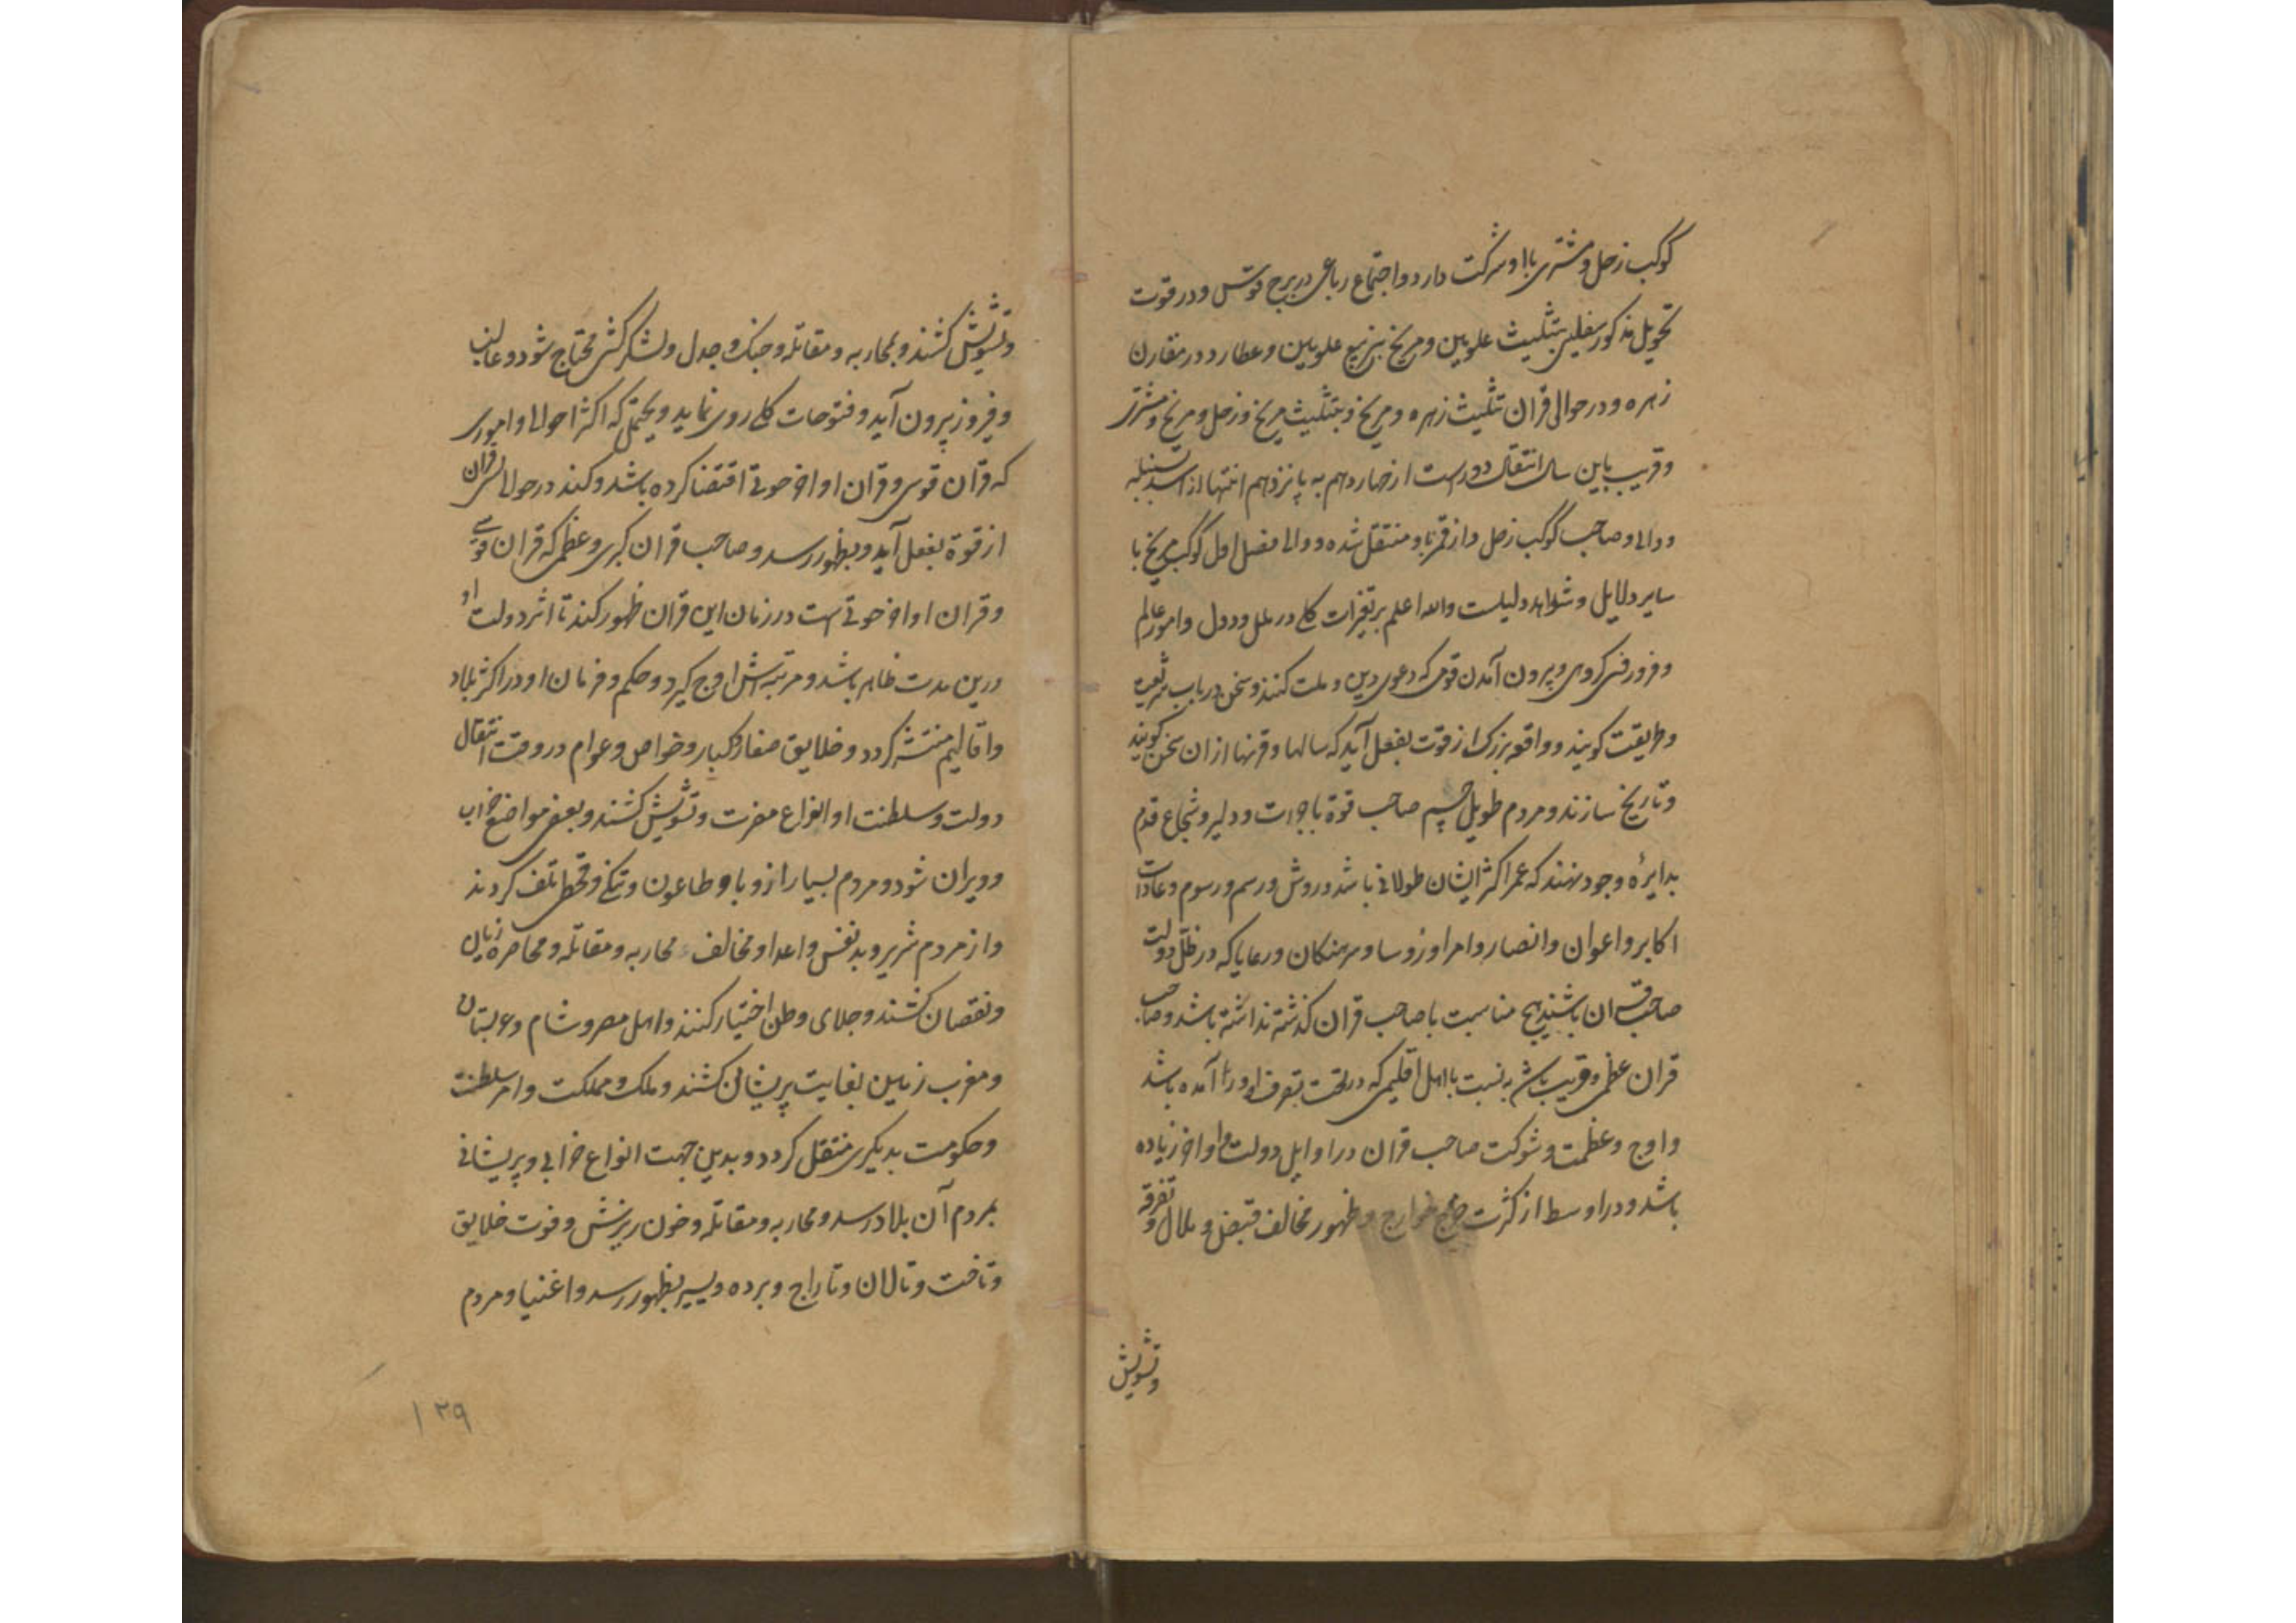 کوکب زحل و مشتری با او شرکت دارد و اجتماع رباعی در برج قوس و در قوت
تحویل مذکور سفلیین بتثلیث علویین و مریخ بتربیع علویین و عطارد در مقارن
زهره و در حوالی قران تثلیث زهره و مریخ و بتثلیث مریخ و زحل و مریخ و مشتری
و قریب باین سال انتقال دورست از چهاردهم به پانزدهم انتها از اسد بسنبله
و والی و صاحب کوکب زحل و از قمر باو منتقل شده و والی فصل اول کوکب مریخ با
سایر دلایل و شواهد دلیلست والله اعلم بر تغیرات کلی در ملل و دول و امور عالم
و فرو رفتن کروهی و پیرون آمدن قومی که دعوی دین و ملت کنند و سخن در باب شریعت
و طریقت کویند و واقعه بزرک از قوت بفعل آید که سالها و قرنها ازان سخن کویند
و تاریخ سازند و مردم طویل جسیم صاحب قوة باجرات و دلیر و شجاع قدم
بدایرهٔ وجود نهند که عمر اکثر ایشان طولانی باشد و روش و رسم و رسوم و عادات
اکابر و اعوان و انصار و امرا و رؤسا و سرهنکان و رعایا که در ظل دولت
صاحب قران باشند هیچ مناسبت با صاحب قران کذشته نداشته باشد و صاحب
قران عظمی و قریب باش به نسبت با اهل اقلیمی که در تحت تصرف او در آمده باشد
و اوج و عظمت و شوکت صاحب قران در اوایل دولت و اواخر زیاده
باشد و در اوسط از کثرت خروج خوارج و ظهور مخالف قبض و ملال و تفرقه
وتشویش
وتشویش کشند و بمحاربه و مقاتله و جنک و جدل و لشکر کشی محتاج شود و غالب
و فیروز پرون آید و فتوحات کلی روی نماید و یحتمل که اکثر احوال و اموری
که قران قوسی و قران اواخر حوتی اقتضا کرده باشد و کند در حوالی این قران
از قوة بفعل آید و بظهور رسد و صاحب قران کبری و عظمی که قران قوسی
و قران اواخر حوتی است در زمان این قران ظهور کند تا اثر دولت او
درین مدت ظاهر باشد و مرتبه اش اوج کیرد و حکم و فرمان او در اکثر بلاد
و اقالیم منتشر کردد و خلایق صغار و کبار و خواص و عوام در وقت انتقال
دولت و سلطنت او انواع مضرت و تشویش کشند و بعضی مواضع خراب
و ویران شود و مردم بسیار از وبا و طاعون و تنکی و قحط تلف کردند
و از مردم شریر و بدنفس و اعدا و مخالف محاربه و مقاتله و محاصره زیان
و نقصان کشند و جلای وطن اختیار کنند و اهل مصر و شام و عربستان
و مغرب زمین بغایت پریشانی کشند و ملک و مملکت و امر سلطنت
و حکومت بدیکری منتقل کردد و بدین جهت انواع خرابی و پریشانی
بمردم آن بلاد رسد و محاربه و مقاتله و خون ریزش و فوت خلایق
و تاخت و تالان و تاراج و برده و یسیر بظهور رسد و اغنیا و مردم
۱۲۹